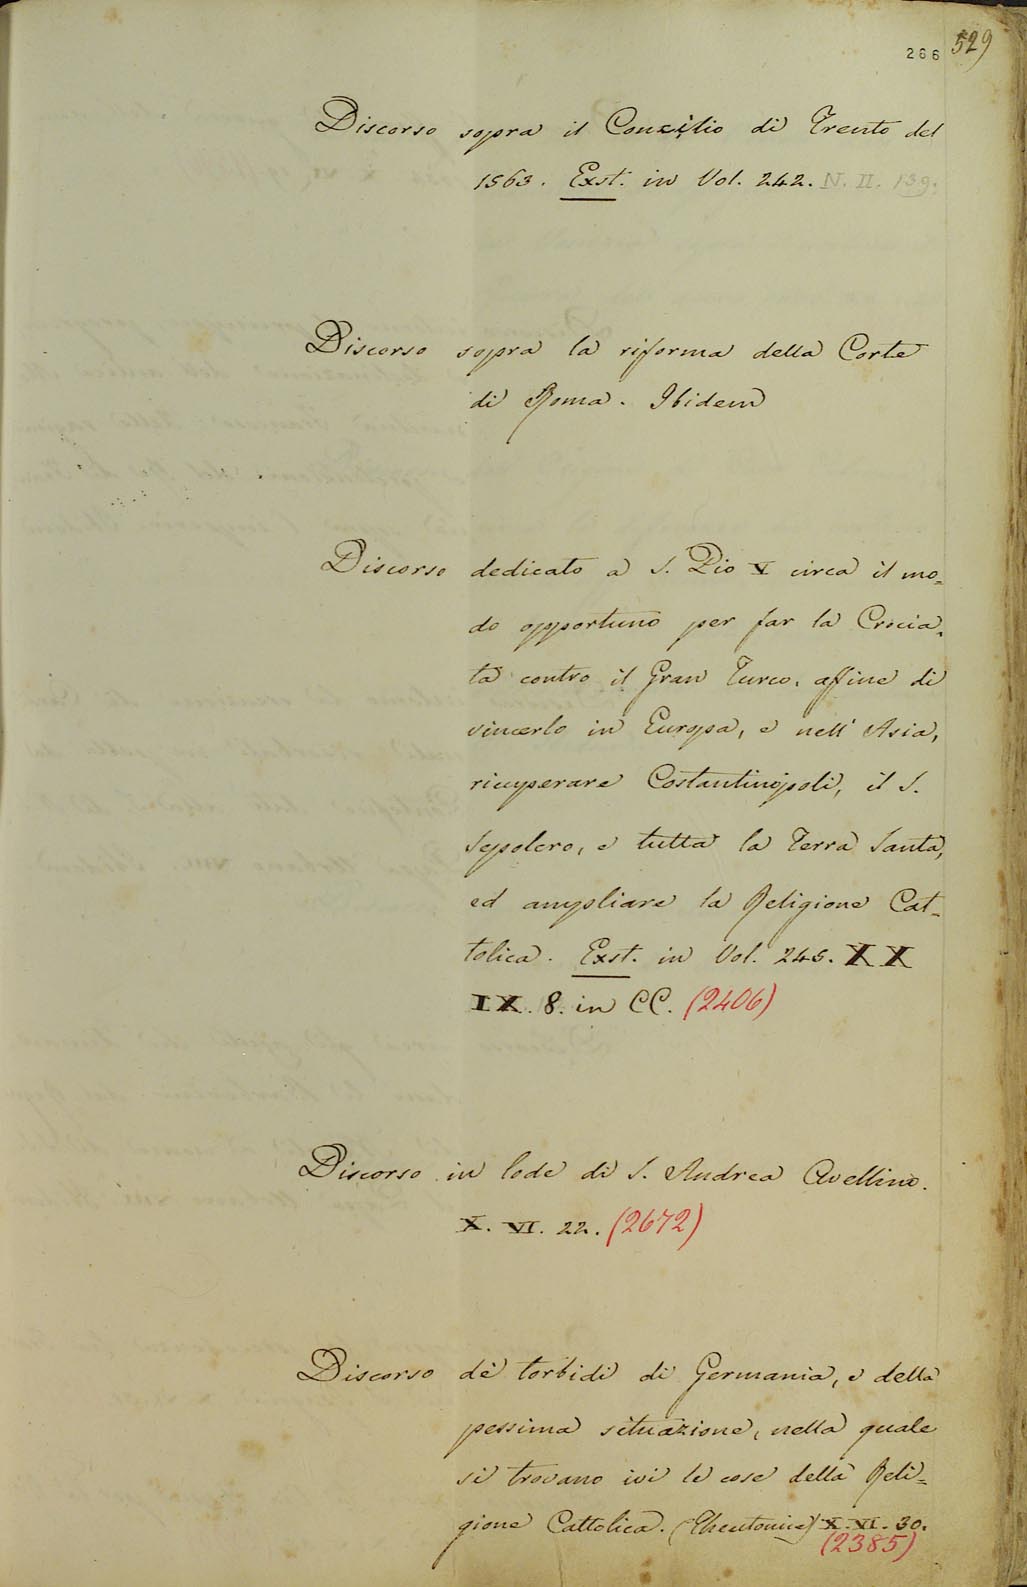 266 529
Discorso sopra il Concilio di Trento del
1563. Exst. in Vol. 242. N. II. 139.
Discorso sopra la riforma della Corte
di Roma. Ibidem
Discorso dedicato a S. Pio V circa il mo=
do opportuno per far la Crocia=
ta contro il Gran Turco, affine di
vincerlo in Europa, e nell' Asia,
ricuperare Costantinopoli, il S.
Sepolcro, e tutta la Terra Santa,
ed ampliare la Religione Cat=
tolica. Exst. in Vol. 245. XX
IX. 8. in CC. (2406)
Discorso in lode di S. Andrea Avellino.
X. VI. 22. (2672)
Discorso de' torbidi di Germania, e della
pessima situazione, nella quale
si trovano ivi le cose della Reli=
gione Cattolica. (Theutonice) X. VI. 30.
(2385)